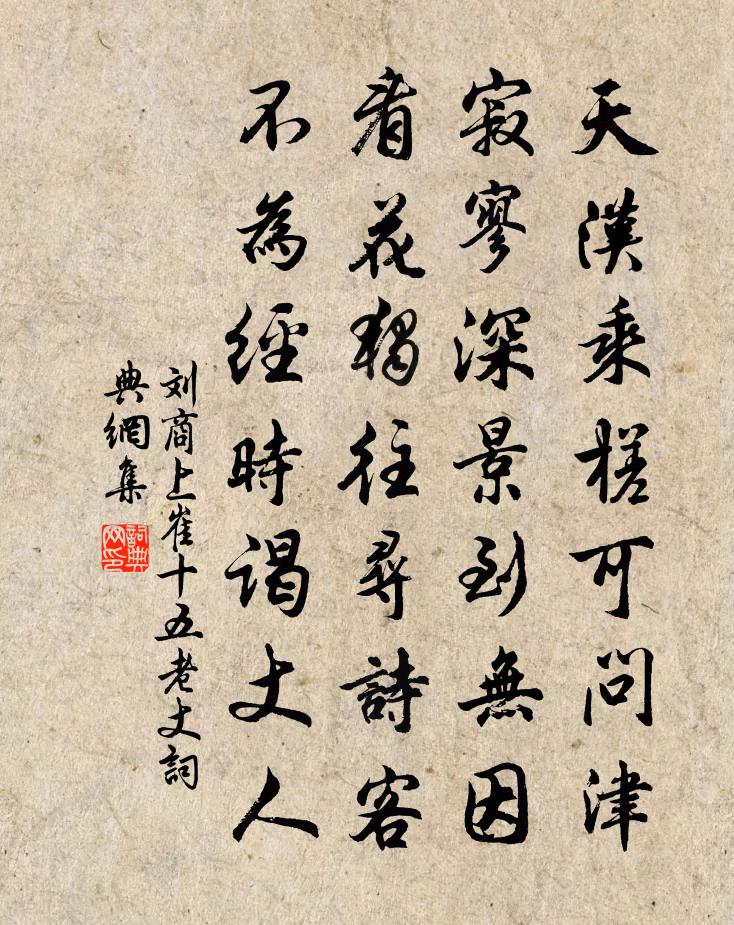 天漢乘槎可問津
寂寥深景到無因
看花獨往尋詩客
不為經時謁丈人
刘商上崔十五老丈詞
典網集
詞典
网印